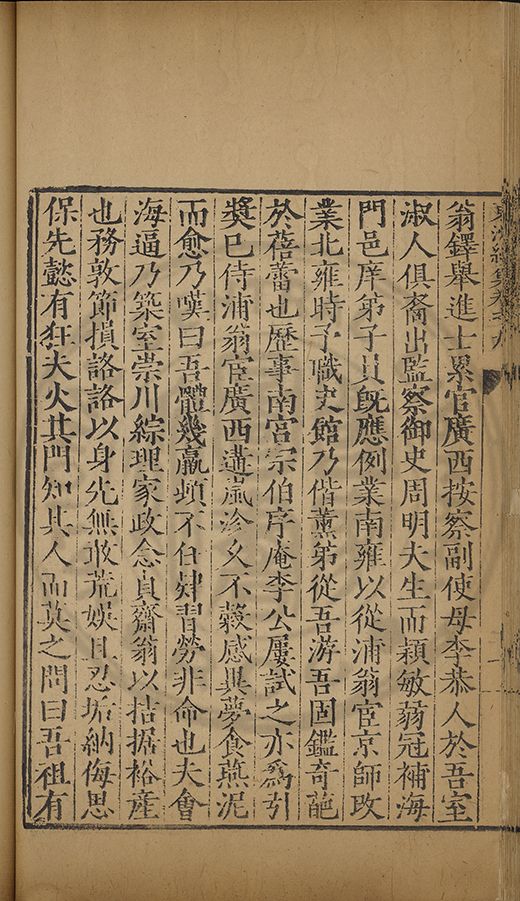 翁鐸舉進士累官廣西按察副使母李恭人於吾室
淑人俱裔出監察御史周明夫生而穎敏蒻冠補海
門邑庠弟子員旣應例業南雍以從浦翁官京師改
業北雍時予職史館乃偕薰弟從吾游吾固鑑奇葩
於蓓蕾也歷事南宮宗伯序庵李公屢試之亦爲引
奬已侍浦翁宦廣西遘嵐沴久不榖感異夢食燕泥
而愈乃嘆曰吾體幾羸頓不任肄習勞非命也夫會
海逼乃築室崇川綜理家政念貞齋翁以拮据裕產
也務敦節損詻詻以身先無敢荒娛且忍垢納侮思
保先懿有狂夫火其門知其人而莫之問曰吾祖有